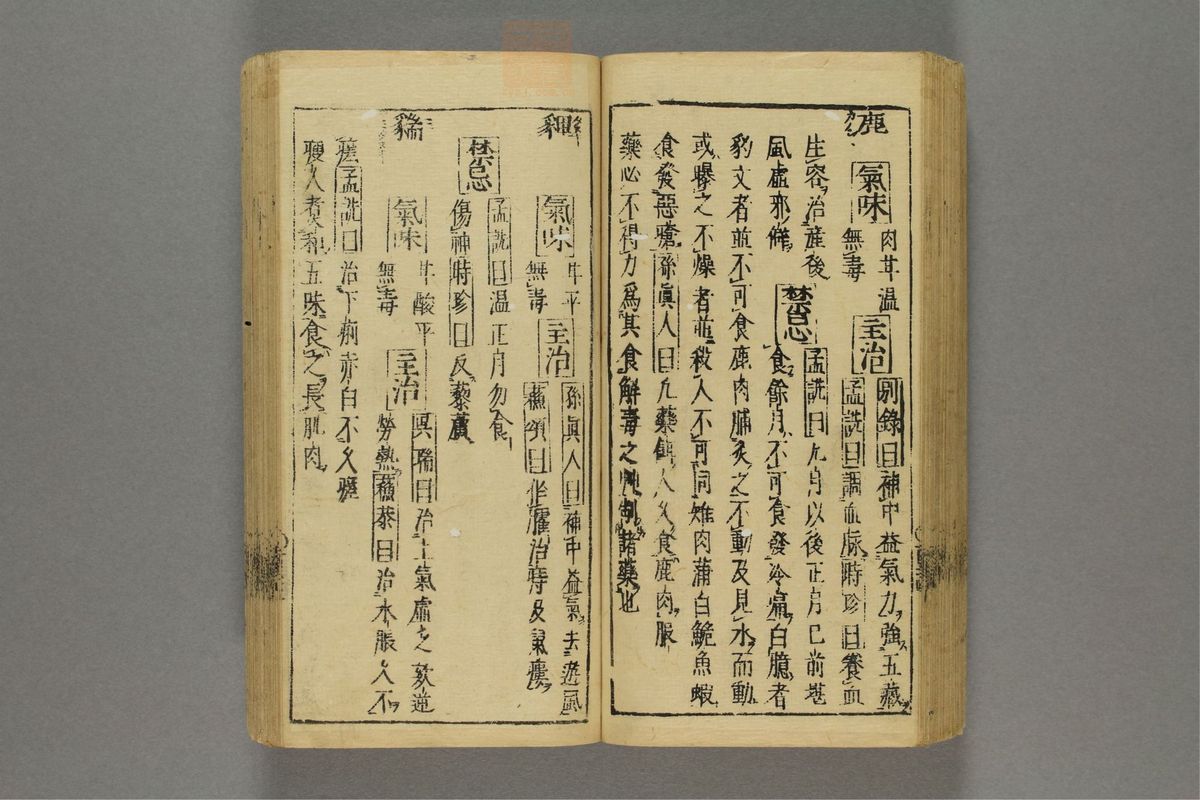 鹿
氣味
肉甘温
無毒
主治
別錄曰補中益氣力強五藏
孟詵曰調血脉時珍曰養血
生容治産後
風虛邪僻
禁忌
孟詵曰九月以後正月已前堪
食餘月不可食發冷痛白臆者
豹文者並不可食鹿肉脯炙之不動及見水而動
或曝之不燥者並殺人不可同雉肉蒲白鮠魚蝦
食發惡瘡孫眞人曰凡藥餌人久食鹿肉服
藥必不得力爲其食解毒之艸制諸藥也
貚
氣味
甘平
無毒
主治
孫眞人曰補中益氣去遊風
蘇頌曰作臛治痔及鼠瘻
禁忌
孟詵曰温正月勿食
傷神時珍曰反藜蘆
貒
氣味
甘酸平
無毒
主治
吳瑞曰治上氣虛乏欬逆
勞熱蘇恭曰治水脹久不
瘥孟詵曰治下痢赤白不久瘥
瘦人煮和五味食之長肌肉